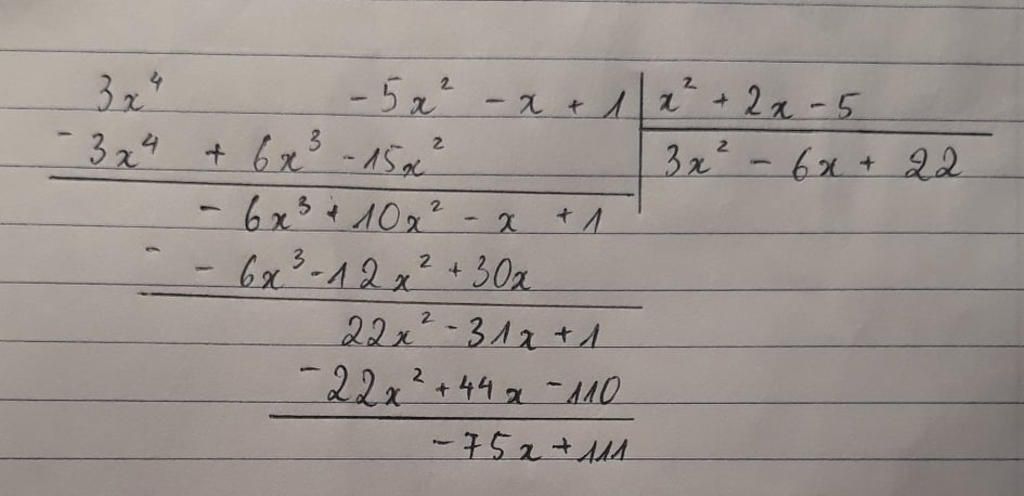 3x⁴ - 5x² - x + 1 | x² + 2x - 5
- 3x⁴ + 6x³ - 15x² | 3x² - 6x + 22
- 6x³ + 10x² - x + 1
- - 6x³ - 12x² + 30x
22x² - 31x + 1
- 22x² + 44x - 110
- 75x + 111